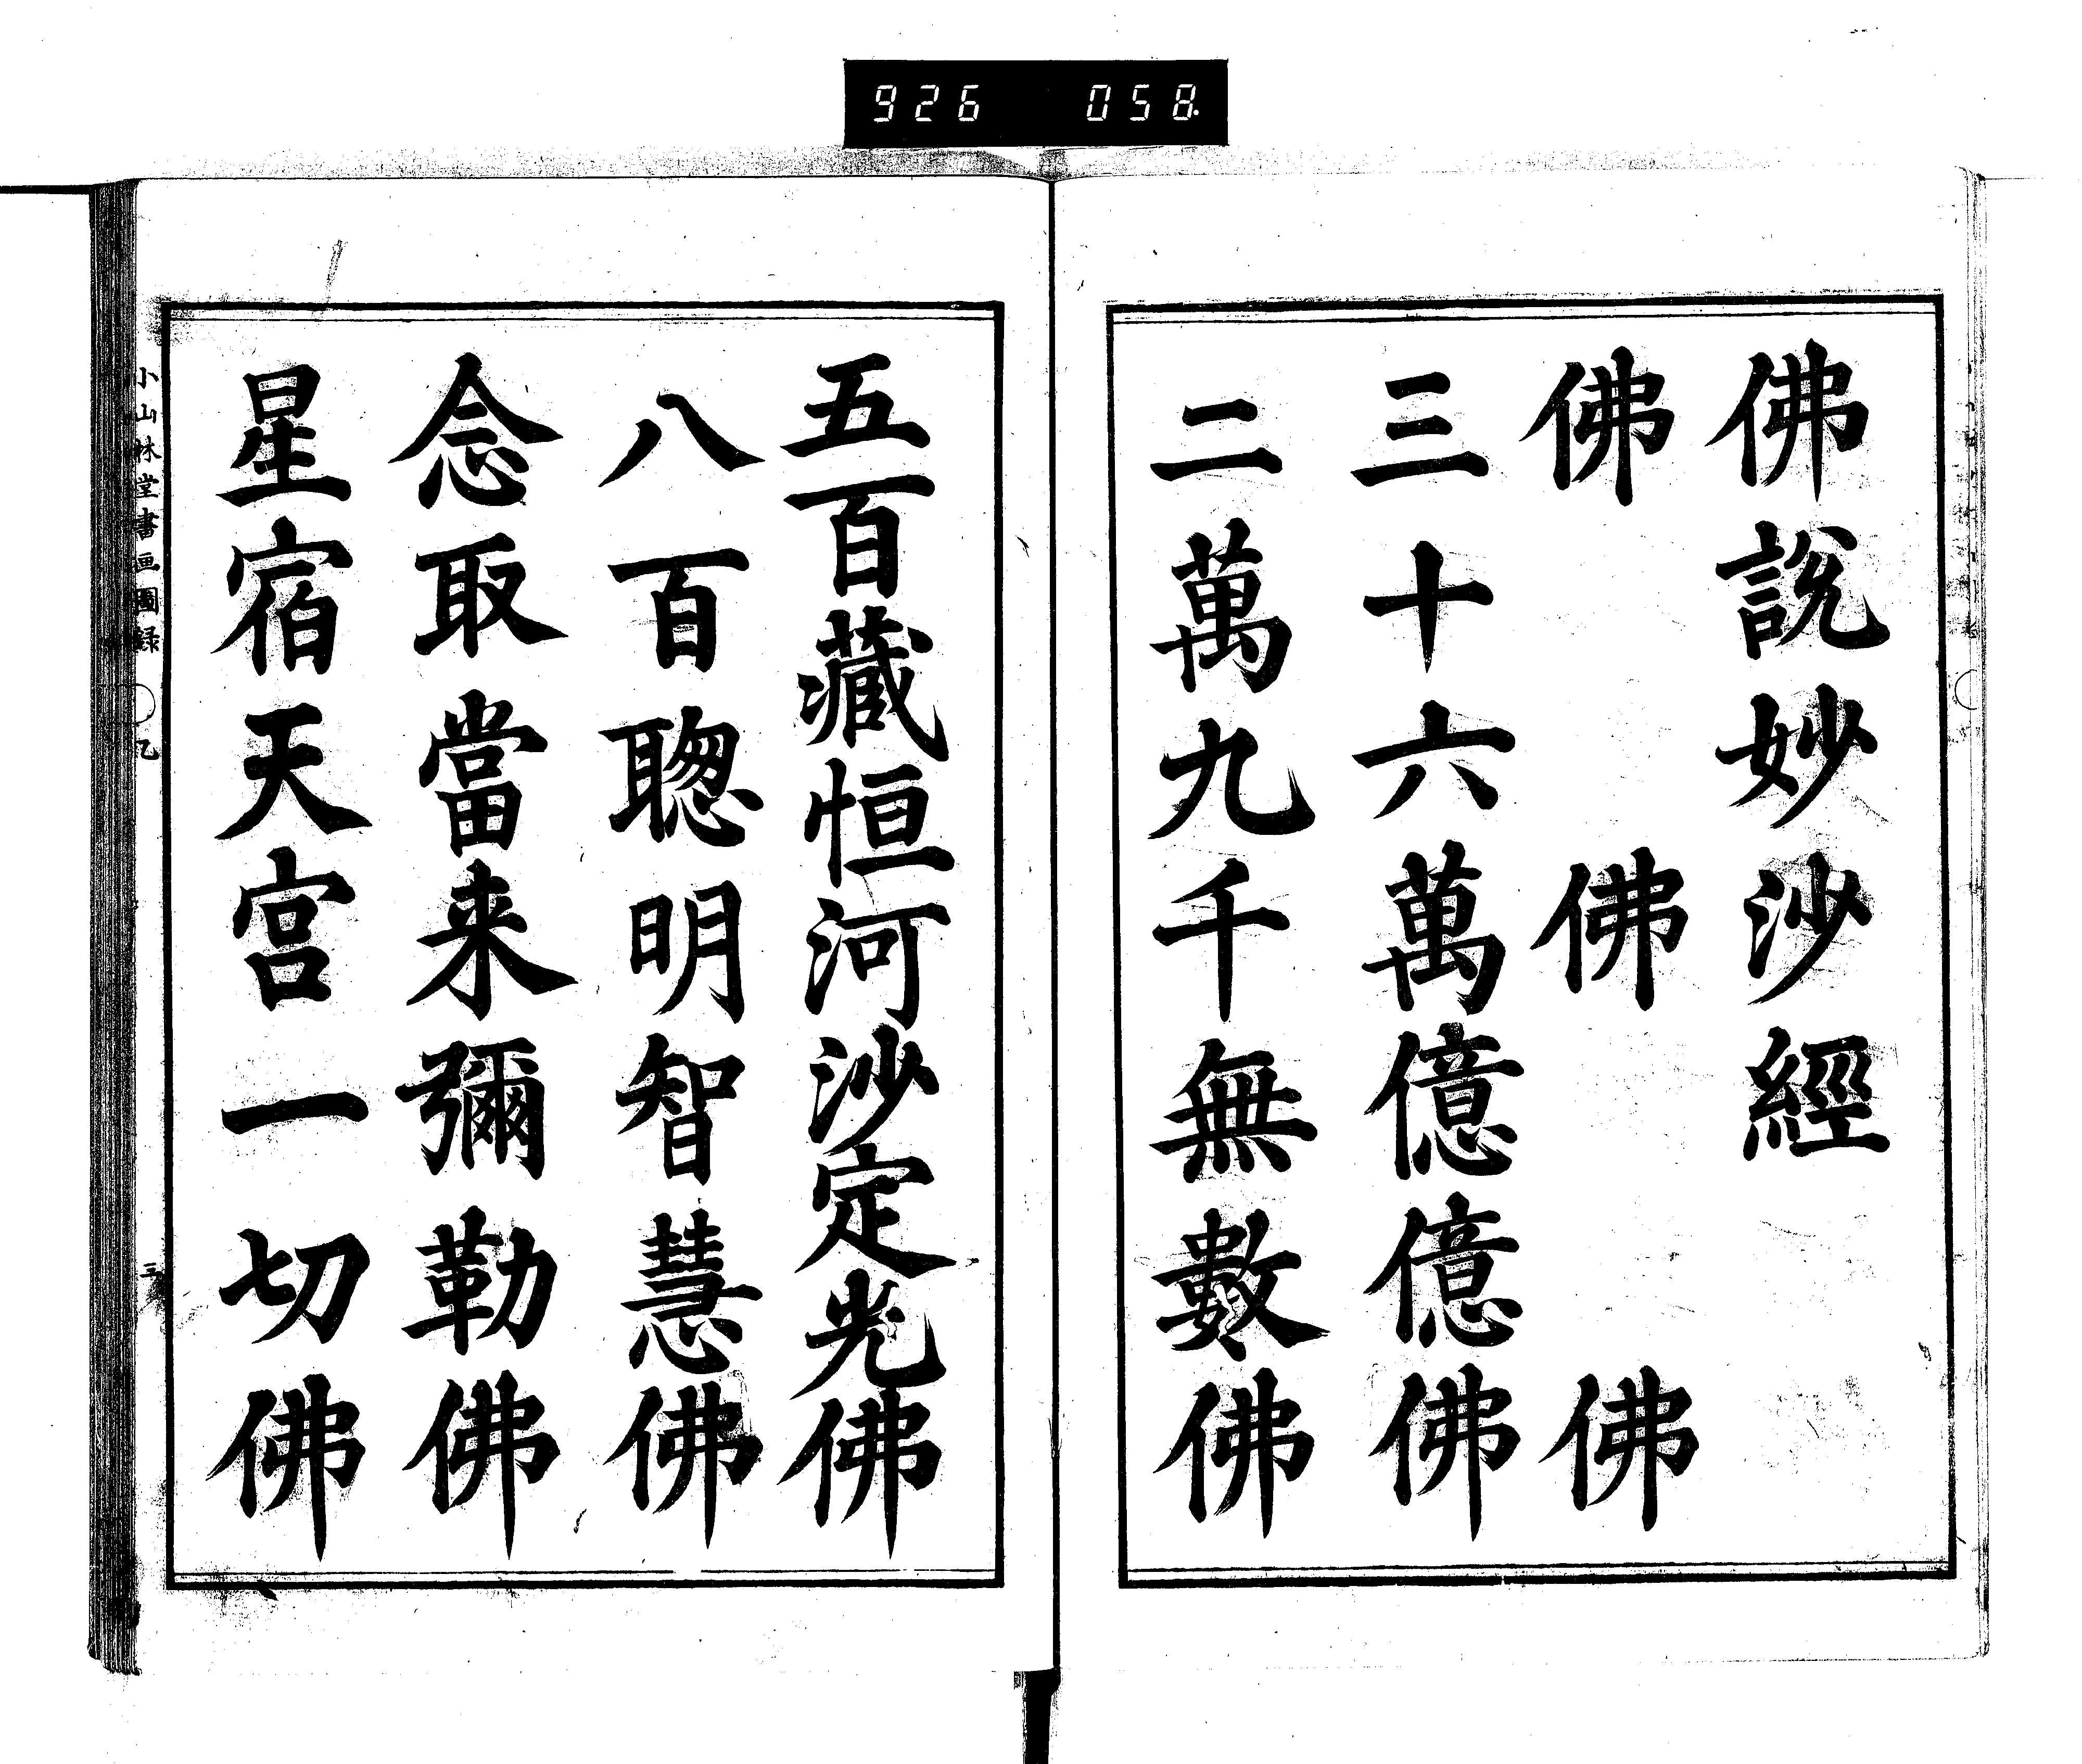 926 058.
佛說妙沙經
佛 佛 佛
三十六萬億億佛
二萬九千無數佛
五百藏恒河沙定光佛
八百聰明智慧佛
念取當来彌勒佛
星宿天宮一切佛
小山林堂書画圖録 乙 三